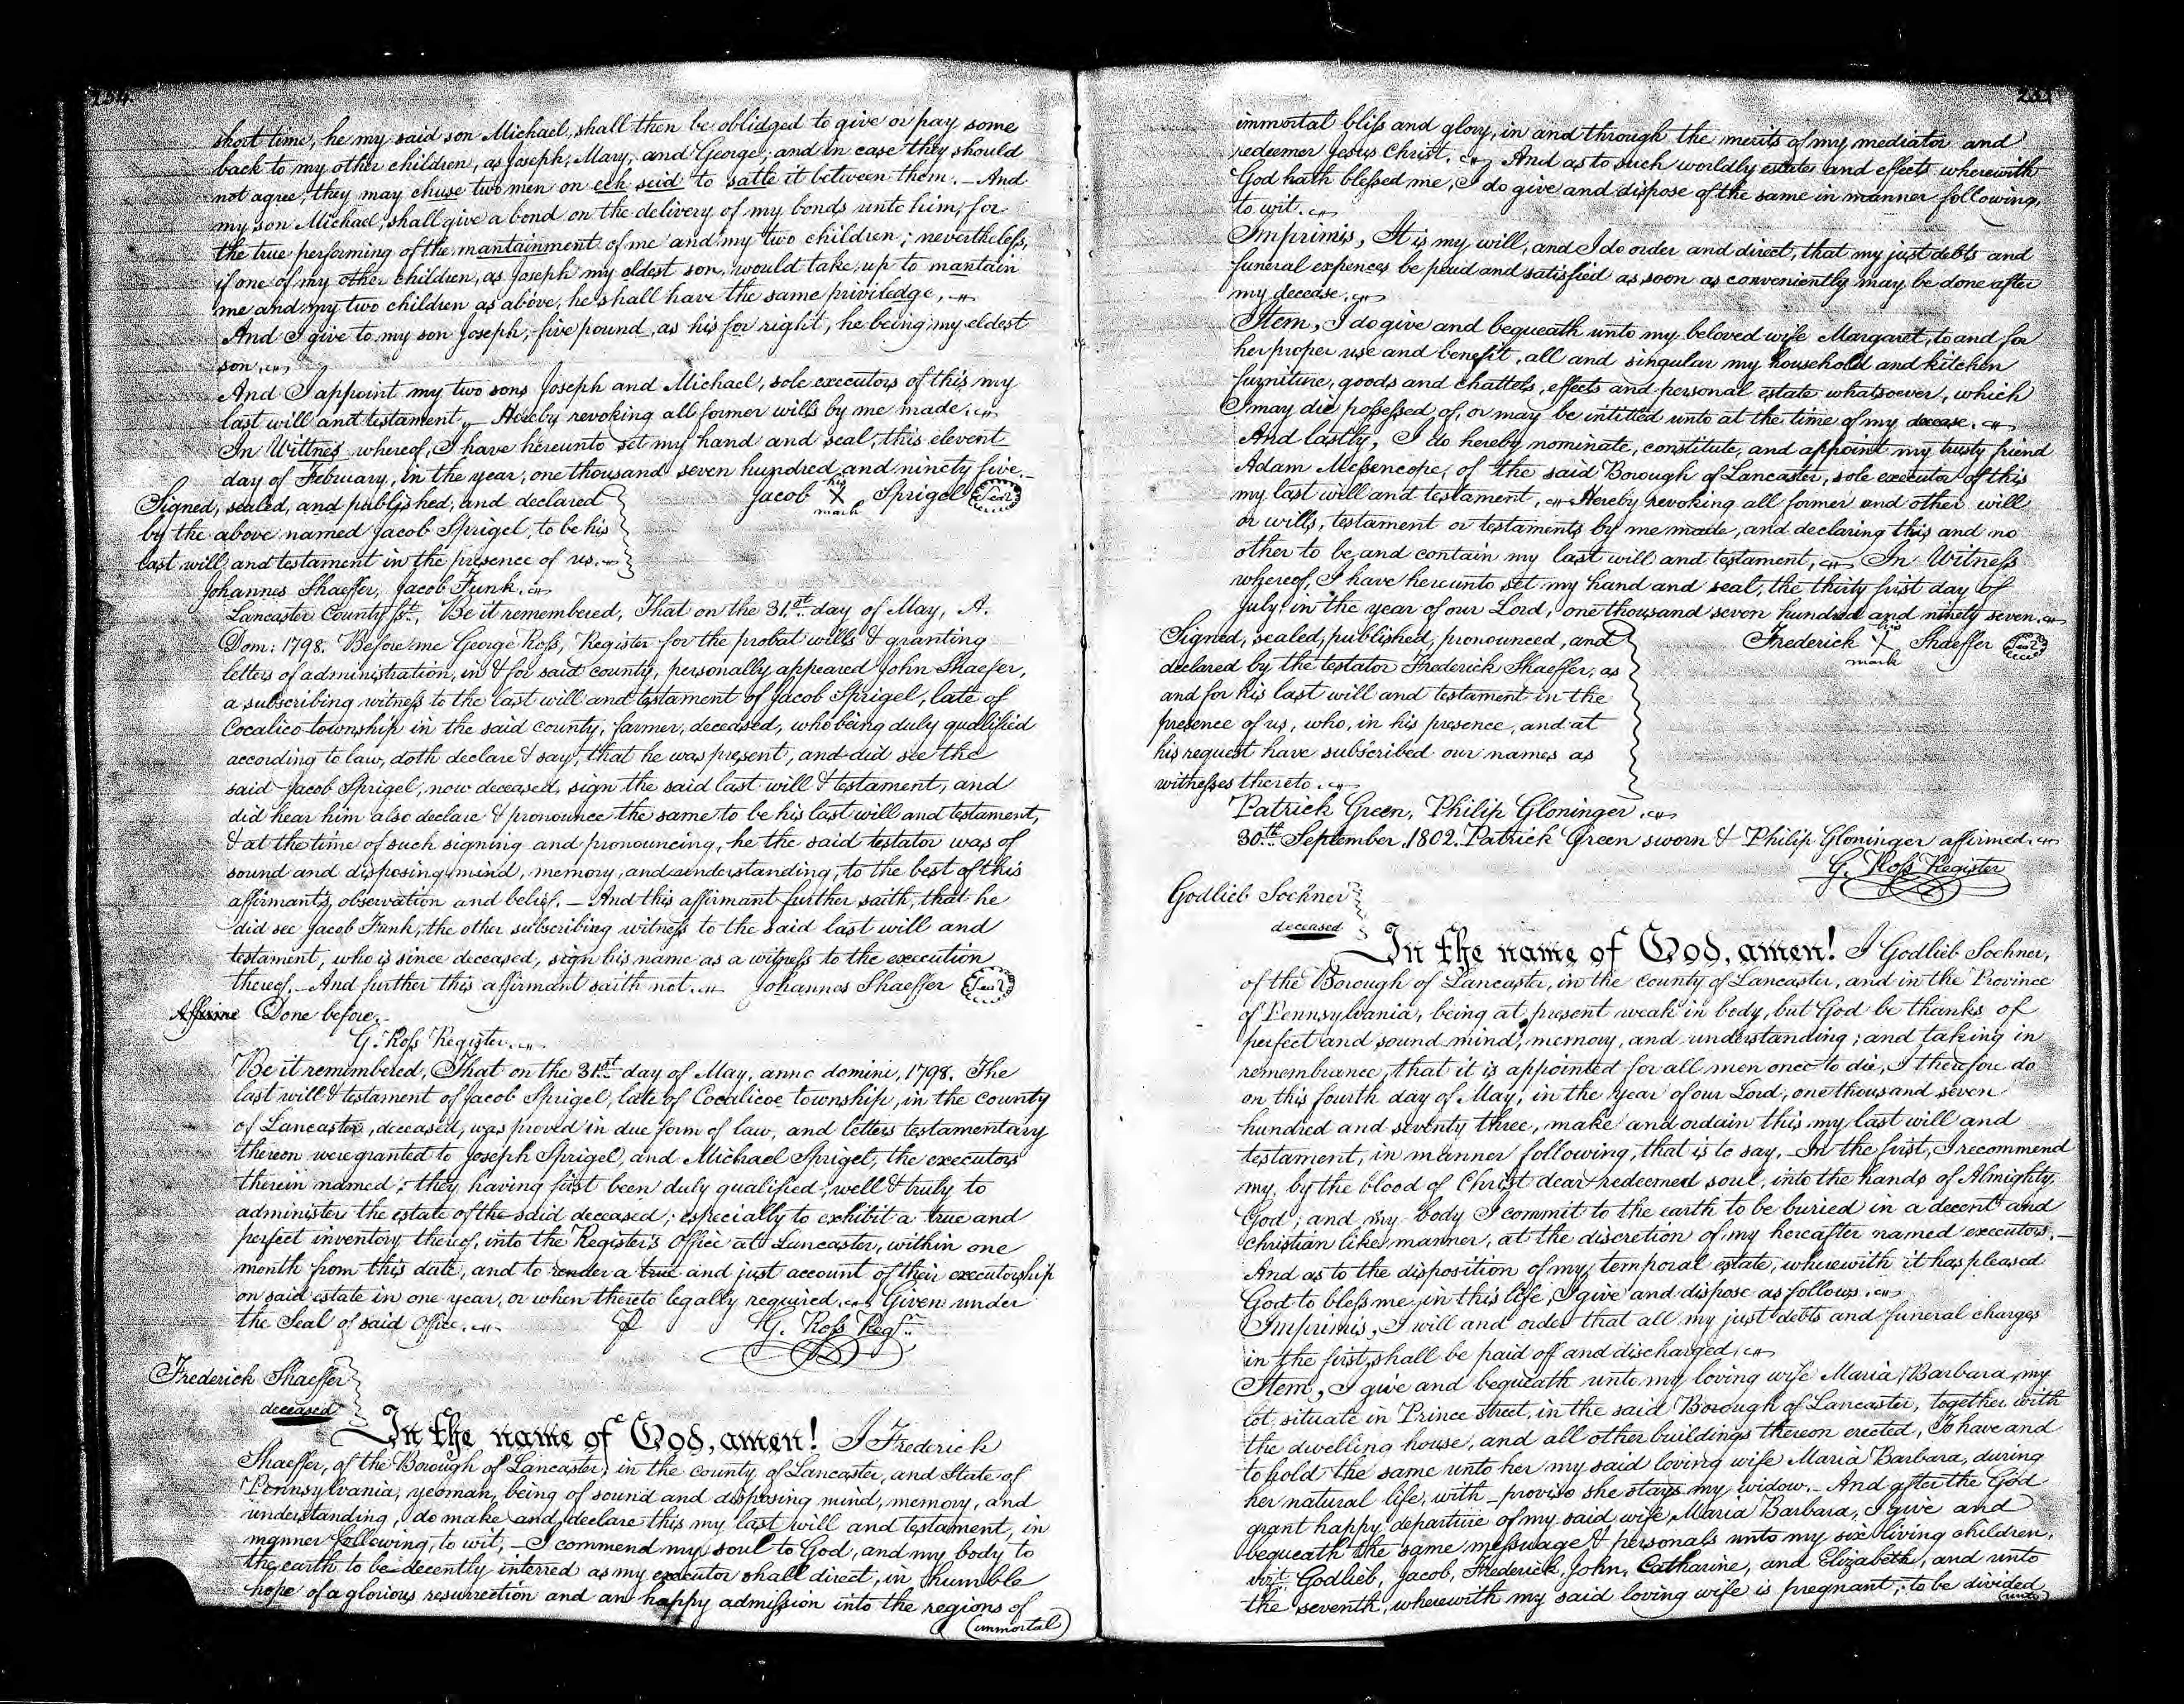 234.
short time, he my said son Michael, shall then be oblidged to give or pay some
back to my other children, as Joseph, Mary, and George; and in case they should
not agree, they may chuse two men on ech seid to satle it between them. — And
my son Michael, shall give a bond on the delivery of my bonds unto him, for
the true performing of the mantainment of me and my two children; nevertheless,
if one of my other children, as Joseph my eldest son, would take up to mantain
me and my two children as above, he shall have the same priviledge. —
And I give to my son Joseph, five pound, as his for right, he being my eldest
son.
And I appoint my two sons Joseph and Michael, sole executors of this my
last will and testament, Hereby revoking all former wills by me made.
In Wittnes whereof, I have hereunto set my hand and seal, this elevent
day of February, in the year, one thousand seven hundred and ninety five. —
Signed, sealed, and published, and declared
by the above named Jacob Sprigel, to be his
last will and testament in the presence of us.
Jacob his X mark Sprigel Seal
Johannes Shaeffer, Jacob Funk.
Lancaster County Sst., Be it remembered, That on the 31st day of May, A.
Dom: 1798. Before me George Ross, Register for the probat wills & granting
letters of administration, in & for said county, personally appeared John Shaefer,
a subscribing witness to the last will and testament of Jacob Sprigel, late of
Cocalico township in the said county, farmer, deceased, who being duly qualified
according to law, doth declare & say, that he was present, and did see the
said Jacob Sprigel, now deceased, sign the said last will & testament, and
did hear him also declare & pronounce the same to be his last will and testament,
& at the time of such signing and pronouncing, he the said testator was of
sound and disposing mind, memory, and understanding, to the best of this
affirmant's observation and belief. — And this affirmant further saith, that he
did see Jacob Funk, the other subscribing witness to the said last will and
testament, who is since deceased, sign his name as a witness to the execution
thereof. — And further this affirmant saith not. Johannes Shaeffer Seal
Done before.
G. Ross Register.
Be it remembered, That on the 31st day of May, anno domini, 1798. The
last will & testament of Jacob Sprigel, late of Cocalicoe township, in the county
of Lancaster, deceased, was proved in due form of law, and letters testamentary
thereon were granted to Joseph Sprigel, and Michael Sprigel, the executors
therein named; they having first been duly qualified, well & truly to
administer the estate of the said deceased; especially to exhibit a true and
perfect inventory thereof, into the Register's Office at Lancaster, within one
month from this date, and to render a true and just account of their executorship
on said estate in one year, or when thereto legally required. Given under
the Seal of said Office. G. Ross Regr.
Frederick Shaeffer
deceased
In the name of God, amen! I Frederick
Shaeffer, of the Borough of Lancaster, in the county of Lancaster, and State of
Pennsylvania, yeoman, being of sound and disposing mind, memory, and
understanding, do make and declare this my last will and testament, in
manner following, to wit, — I commend my soul to God, and my body to
the earth to be decently interred as my executor shall direct, in humble
hope of a glorious resurrection and an happy admission into the regions of
(immortal)
235
immortal bliss and glory, in and through the merits of my mediator and
redeemer Jesus Christ. And as to such worldly estate and effects wherewith
God hath blessed me, I do give and dispose of the same in manner following,
to wit.
Imprimis, It is my will, and I do order and direct, that my just debts and
funeral expences be paid and satisfied as soon as conveniently may be done after
my decease.
Item, I do give and bequeath unto my beloved wife Margaret, to and for
her proper use and benefit, all and singular my household and kitchen
furniture, goods and chattels, effects and personal estate whatsoever, which
I may die possessed of, or may be intitled unto at the time of my decease.
And lastly, I do hereby nominate, constitute, and appoint my trusty friend
Adam Messencope, of the said Borough of Lancaster, sole executor of this
my last will and testament, Hereby revoking all former and other will
or wills, testament or testaments by me made, and declaring this and no
other to be and contain my last will and testament, In Witness
whereof, I have hereunto set my hand and seal, the thirty first day of
July in the year of our Lord, one thousand seven hundred and ninety seven.
Signed, sealed, published, pronounced, and
declared by the testator Frederick Shaeffer, as
and for his last will and testament in the
presence of us, who, in his presence, and at
his request have subscribed our names as
witnesses thereto.
Frederick his X mark Shaeffer Seal
Patrick Green, Philip Gloninger.
30th September, 1802. Patrick Green sworn & Philip Gloninger affirmed.
G. Ross Register
Godlieb Sochner
deceased
In the name of God, amen! I Godlieb Sochner,
of the Borough of Lancaster, in the county of Lancaster, and in the Province
of Pennsylvania, being at present weak in body, but God be thanks of
perfect and sound mind, memory, and understanding; and taking in
remembrance, that it is appointed for all men once to die, I therefore do
on this fourth day of May, in the year of our Lord, one thousand seven
hundred and seventy three, make and ordain this my last will and
testament, in manner following, that is to say, — In the first, I recommend
my, by the blood of Christ dear redeemed soul, into the hands of Almighty
God; and my body I commit to the earth to be buried in a decent and
christian like manner, at the discretion of my hereafter named executors. —
And as to the disposition of my temporal estate, wherewith it has pleased
God to bless me in this life, I give and dispose as follows.
Imprimis, I will and order that all my just debts and funeral charges
in the first, shall be paid off and discharged.
Item, I give and bequeath unto my loving wife Maria Barbara, my
lot situate in Prince street, in the said Borough of Lancaster, together with
the dwelling house, and all other buildings thereon erected, To have and
to hold the same unto her my said loving wife Maria Barbara, during
her natural life, with proviso she stays my widow. — And after the God
grant happy departure of my said wife Maria Barbara, I give and
bequeath the same messuage & personals unto my six living children,
vizt. Godlieb, Jacob, Frederick, John, Catharine, and Elizabeth, and unto
the seventh, wherewith my said loving wife is pregnant; to be divided